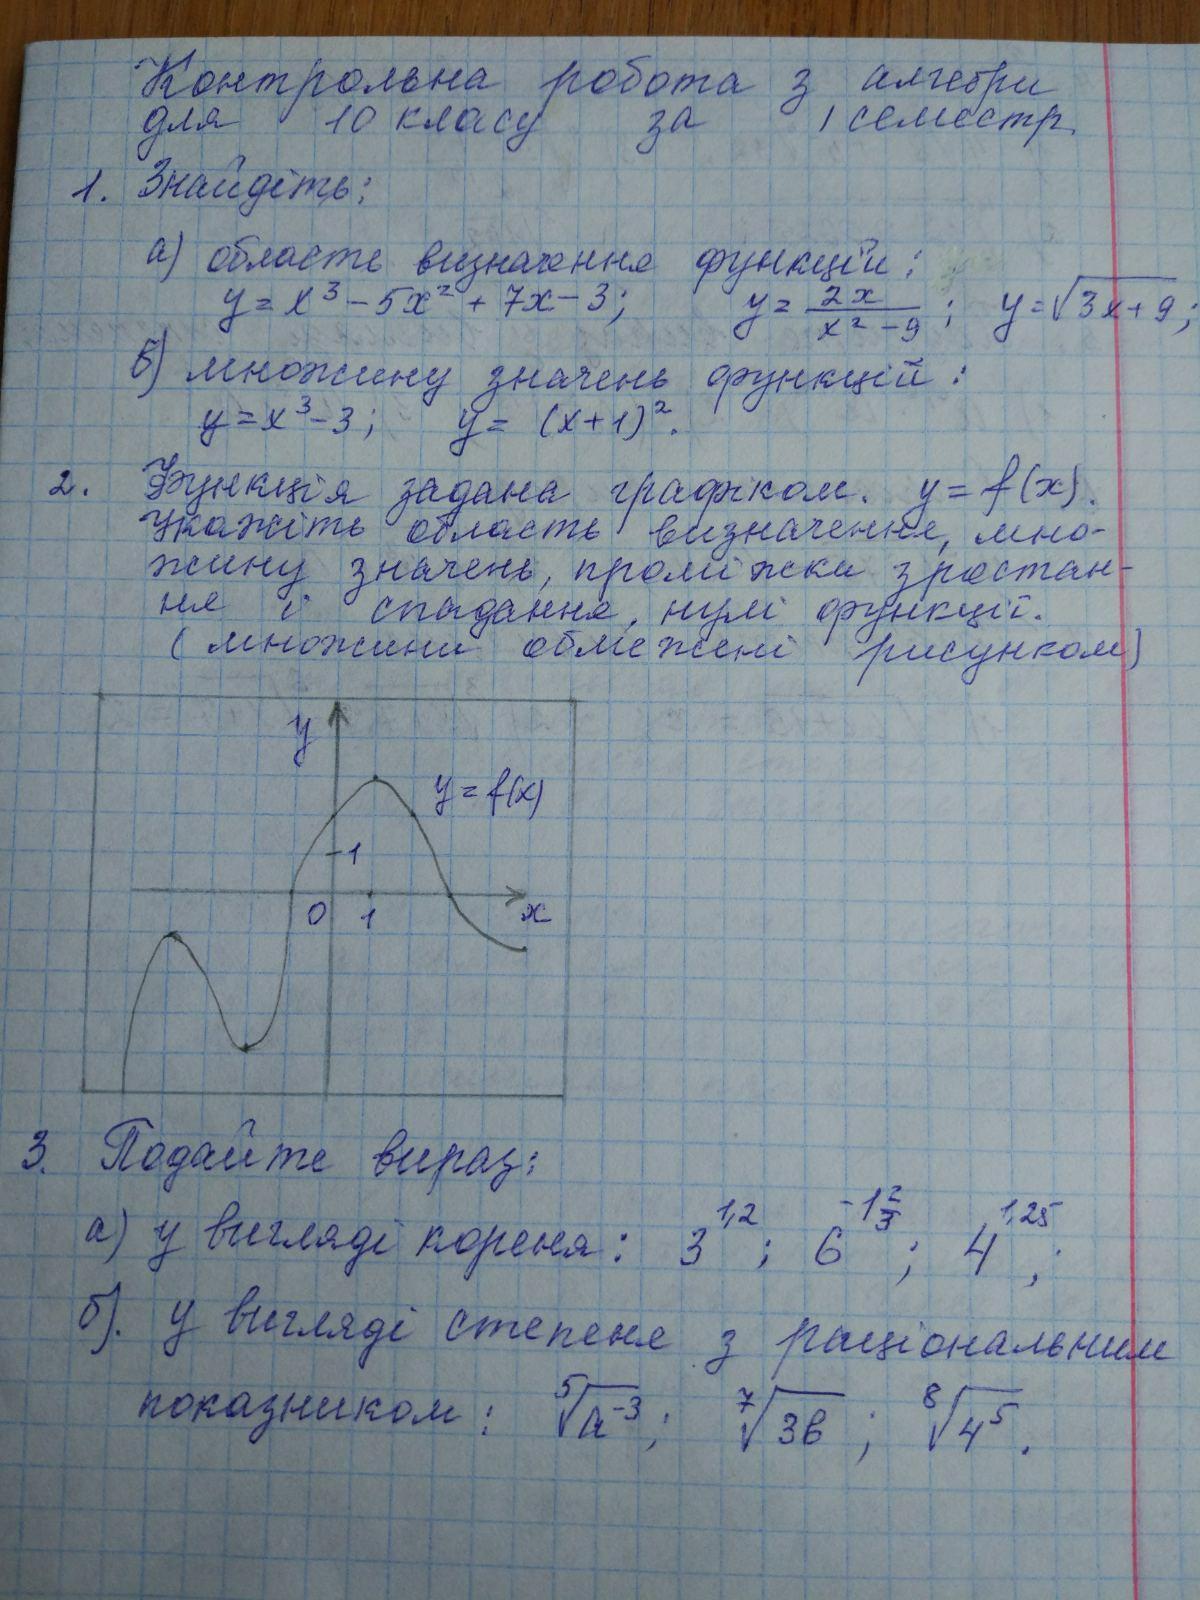 Контрольна робота з алгебри
для 10 класу за І семестр.
1. Знайдіть:
а) область визначення функцій:
y = x³ - 5x² + 7x - 3; y = 2x/(x² - 9); y = √(3x + 9);
б) множину значень функцій:
y = x³ - 3; y = (x + 1)².
2. Функція задана графіком. y = f(x).
Укажіть область визначення, мно-
жину значень, проміжки зростан-
ня і спадання, нулі функції.
(множини обмежені рисунком)
y
y = f(x)
1
0 1 x
3. Подайте вираз:
а) у вигляді кореня: 3^1,2; 6^(-1 2/3); 4^1,25;
б). у вигляді степеня з раціональним
показником: ⁵√(a⁻³); ⁷√(3b); ⁸√(4⁵).